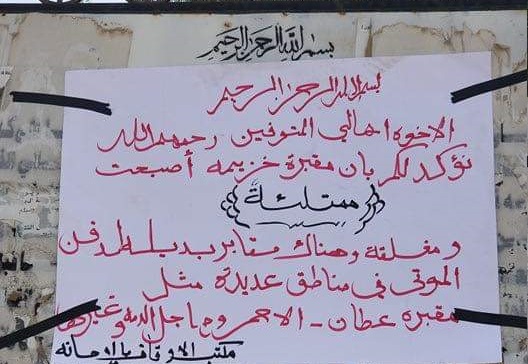 بسم الله الرحمن الرحيم
بسم الله الرحمن الرحيم
الاخوة اهالي المتوفين رحمهم الله
نؤكد لكم بان مقبرة خزيمه أصبحت
(ممتلئة)
ومغلقة وهناك مقابر بديله لدفن
الموتى في مناطق عديدة مثل
مقبرة عطان - الاحمر وماجل الدمه وغيرها
مكتب الاوقاف بالامانه